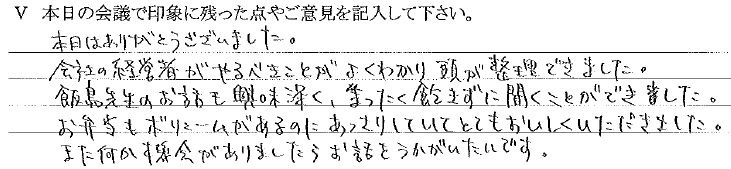 Ⅴ 本日の会議で印象に残った点やご意見を記入して下さい。
本日はありがとうございました。
会社の経営者がやるべきことがよくわかり頭が整理できました。
飯島先生のお話も興味深く、まったく飽きずに聞くことができました。
お弁当もボリュームがあるのにあっさりしていてとてもおいしくいただきました。
また何か機会がありましたらお話をうかがいたいです。